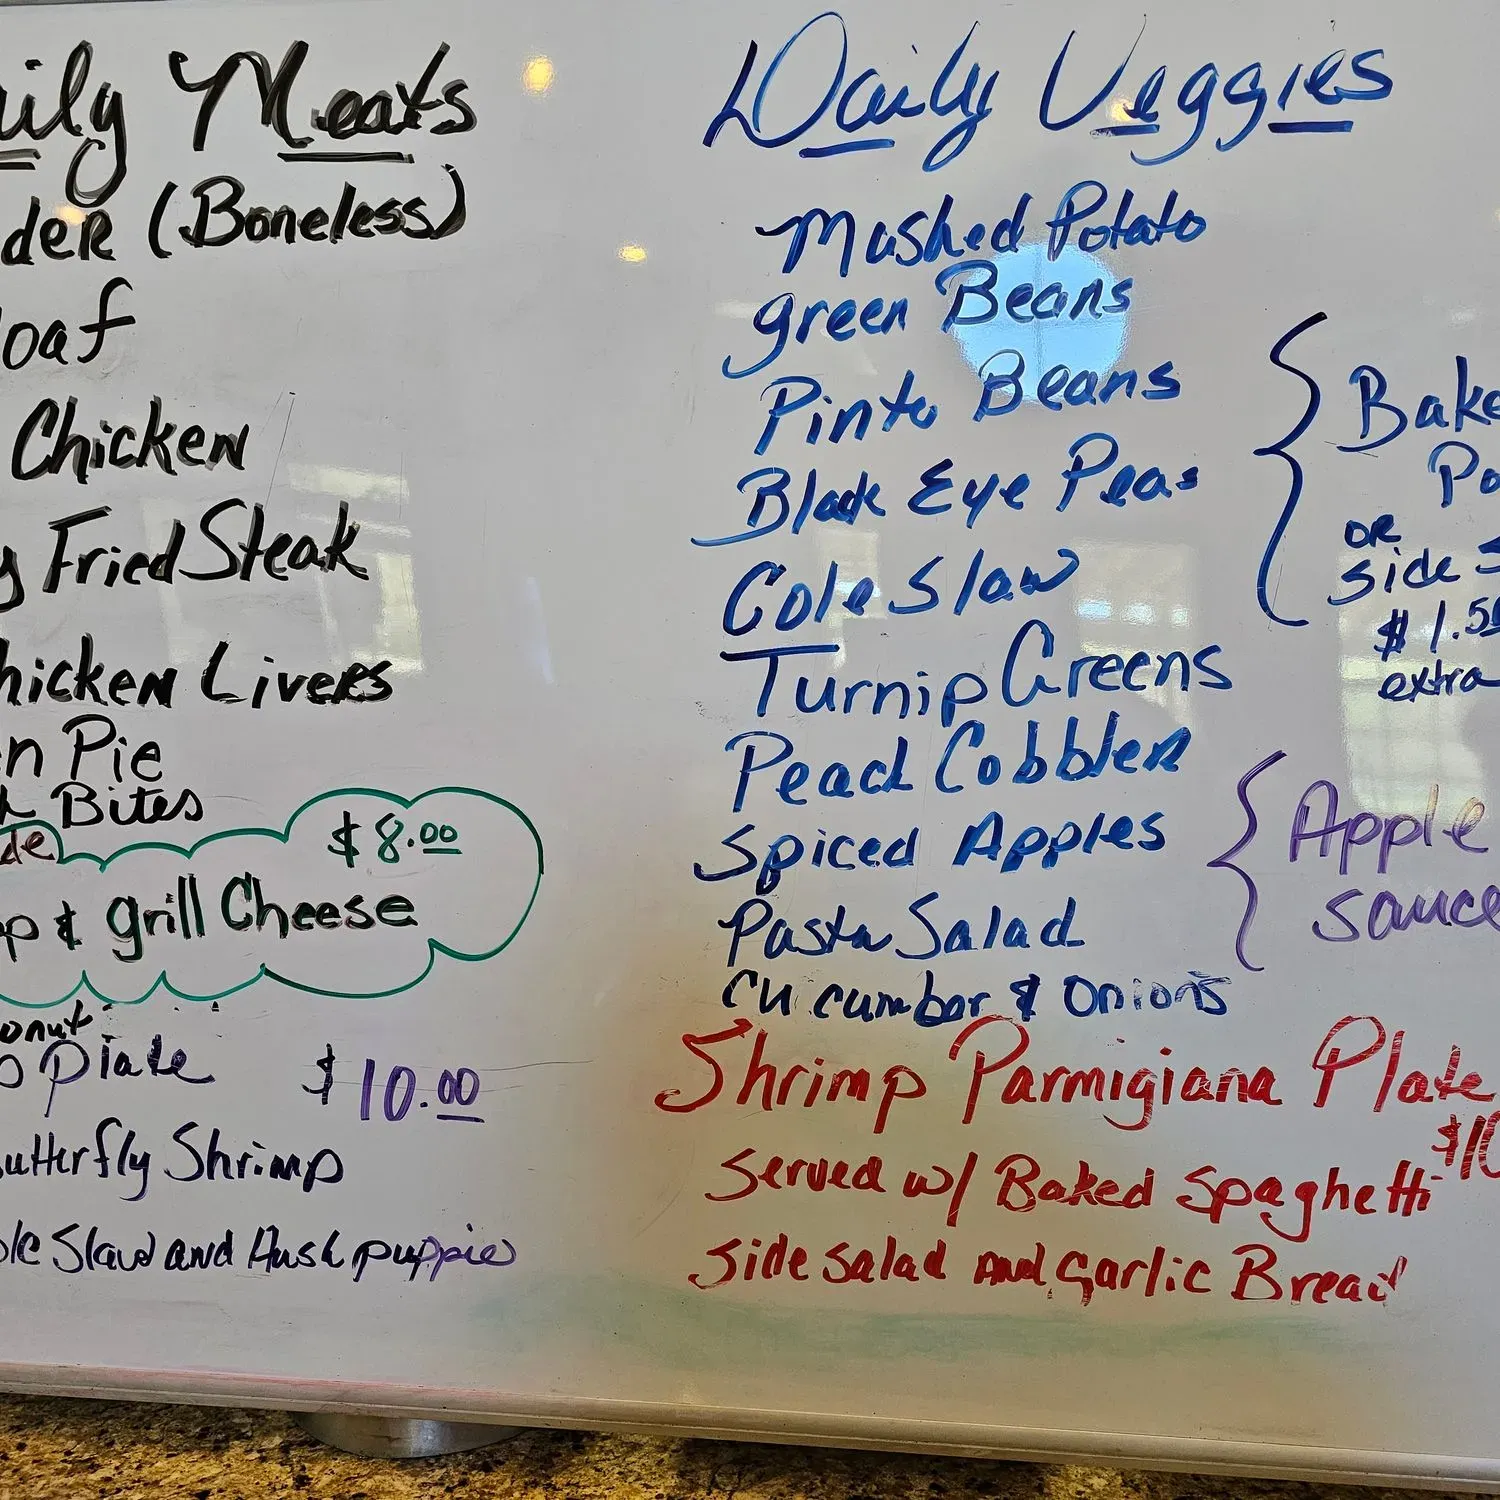 ily Meats
der (Boneless)
loaf
Chicken
y Fried Steak
hicken Livers
n Pie
Bites
de
$8.00
p & grill Cheese
onut
o Plate $10.00
utterfly Shrimp
ole Slaw and Hush puppie
Daily Veggies
Mashed Potato
green Beans
Pinto Beans
Black Eye Peas
Cole Slaw
Turnip Greens
Peach Cobbler
Spiced Apples
Pasta Salad
Cucumbor & Onions
Bake
Po
or
side S
$1.50
extra
Apple
sauce
Shrimp Parmigiana Plate
$10
Served w/ Baked Spaghetti
Side Salad and Garlic Bread